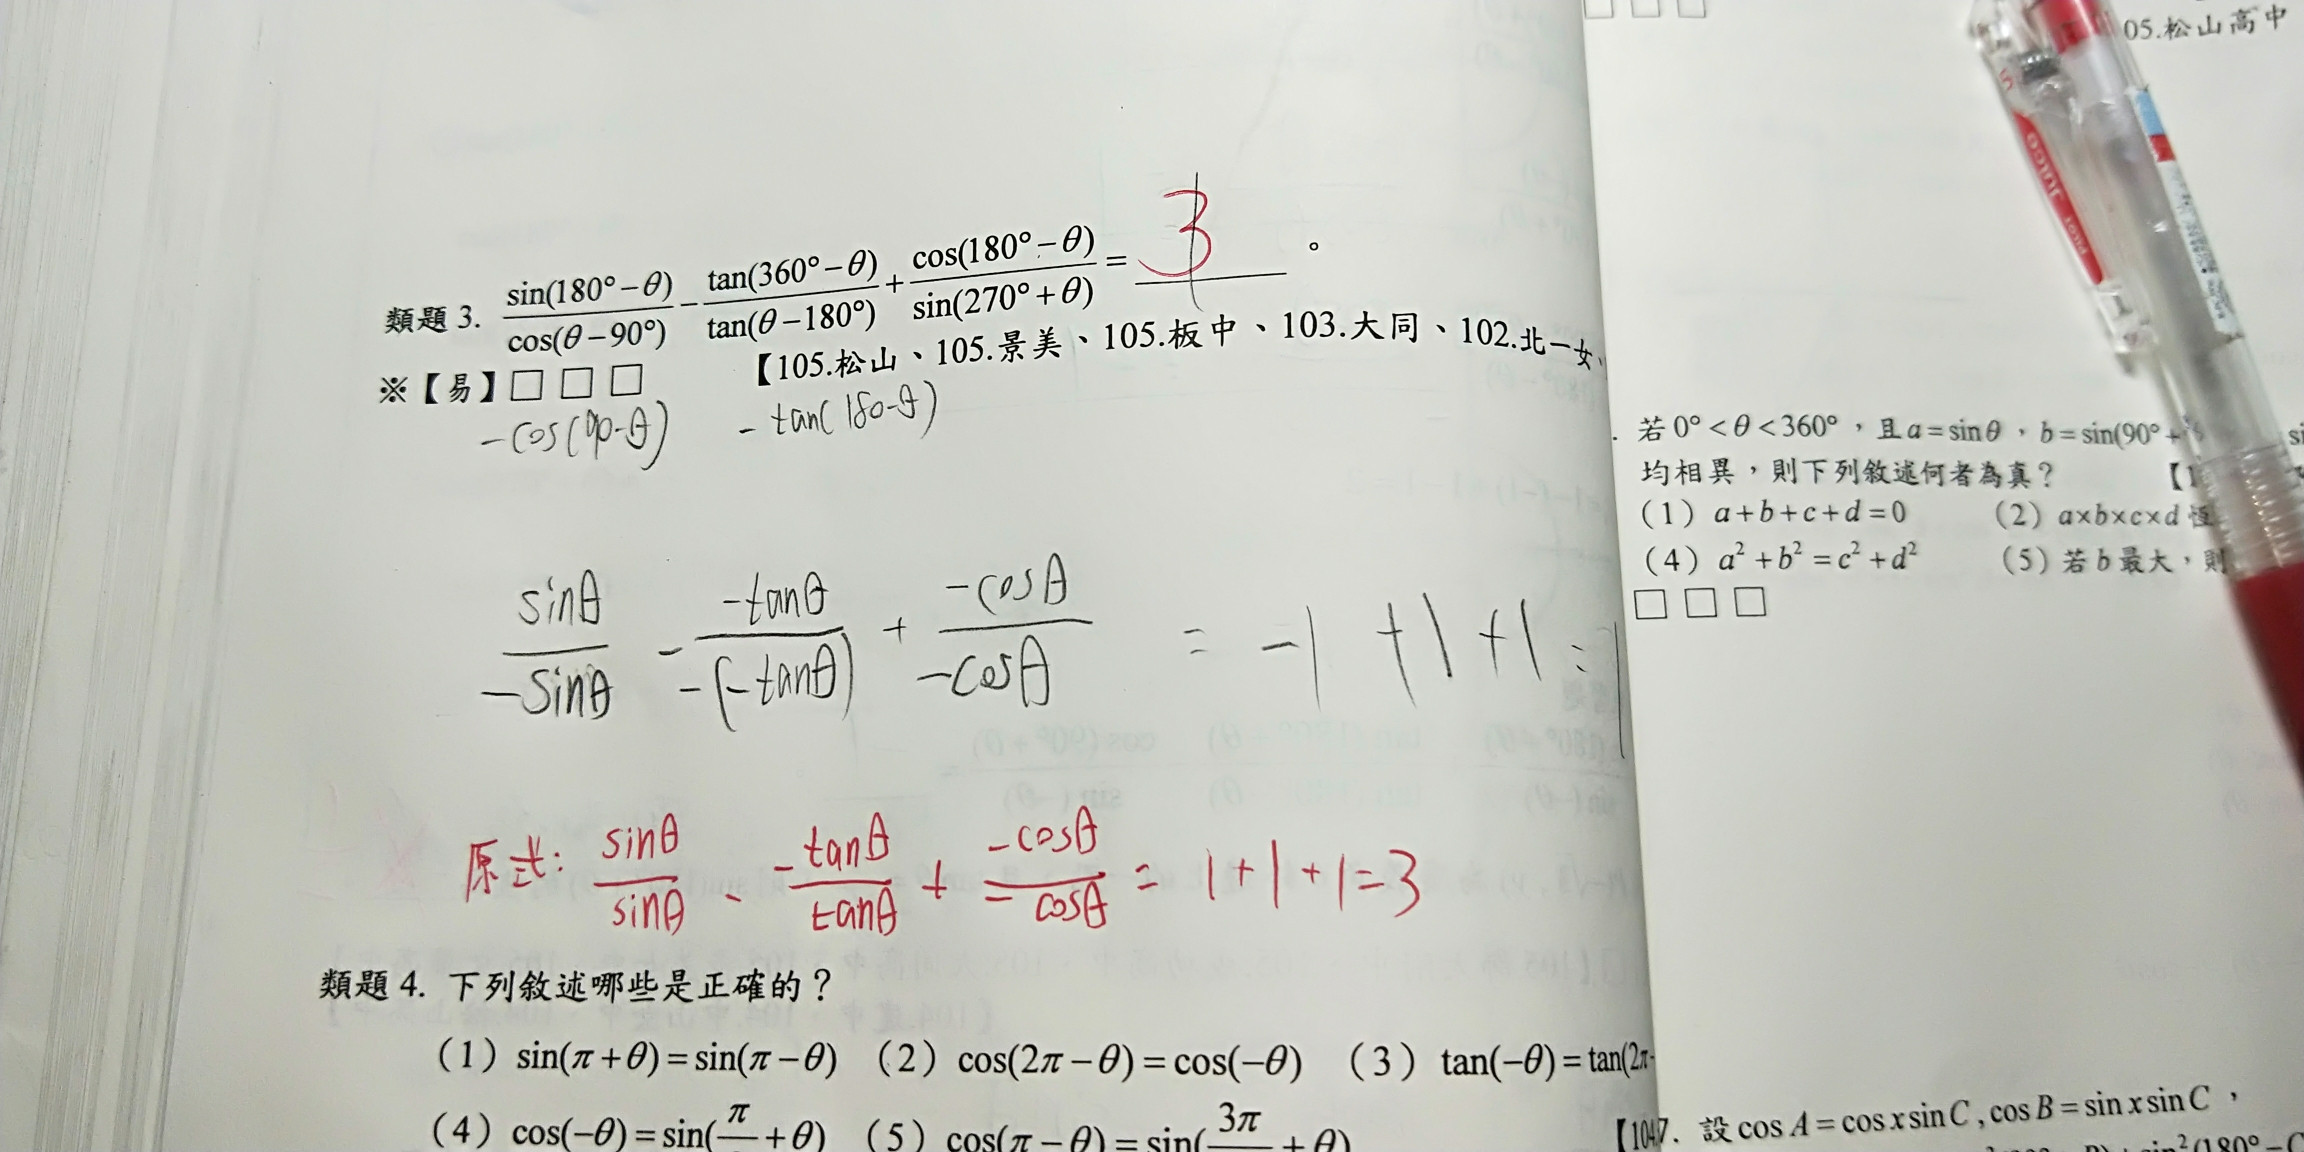 05.松山高中
3
類題 3. \frac{sin(180°−θ)}{cos(θ−90°)} − \frac{tan(360°−θ)}{tan(θ−180°)} + \frac{cos(180°−θ)}{sin(270°+θ)} = 。
※【易】□ □ □ 【105.松山、105.景美、105.板中、103.大同、102.北一女、
−cos(90−θ) − tan(180−θ)
\frac{sinθ}{−sinθ} − \frac{−tanθ}{−(−tanθ)} + \frac{−cosθ}{−cosθ} = −1 +1 +1 = 1
原式: \frac{sinθ}{sinθ} − \frac{−tanθ}{tanθ} + \frac{−cosθ}{−cosθ} = 1+1+1=3
類題 4. 下列敘述哪些是正確的？
（1）sin(π+θ)=sin(π−θ) （2）cos(2π−θ)=cos(−θ) （3）tan(−θ)=tan(2π-
（4）cos(−θ)=sin(\frac{π}{}+θ) （5）cos(π−θ)=sin(\frac{3π}{}+θ)
若 0°<θ<360°，且 a=sinθ，b=sin(90°+
均相異，則下列敘述何者為真？
（1）a+b+c+d=0 （2）a×b×c×d 恆
（4）a²+b²=c²+d² （5）若 b 最大，則
□ □ □
7. 設 cos A=cos x sin C , cos B=sin x sin C ，
sin²(180°−C
Juice